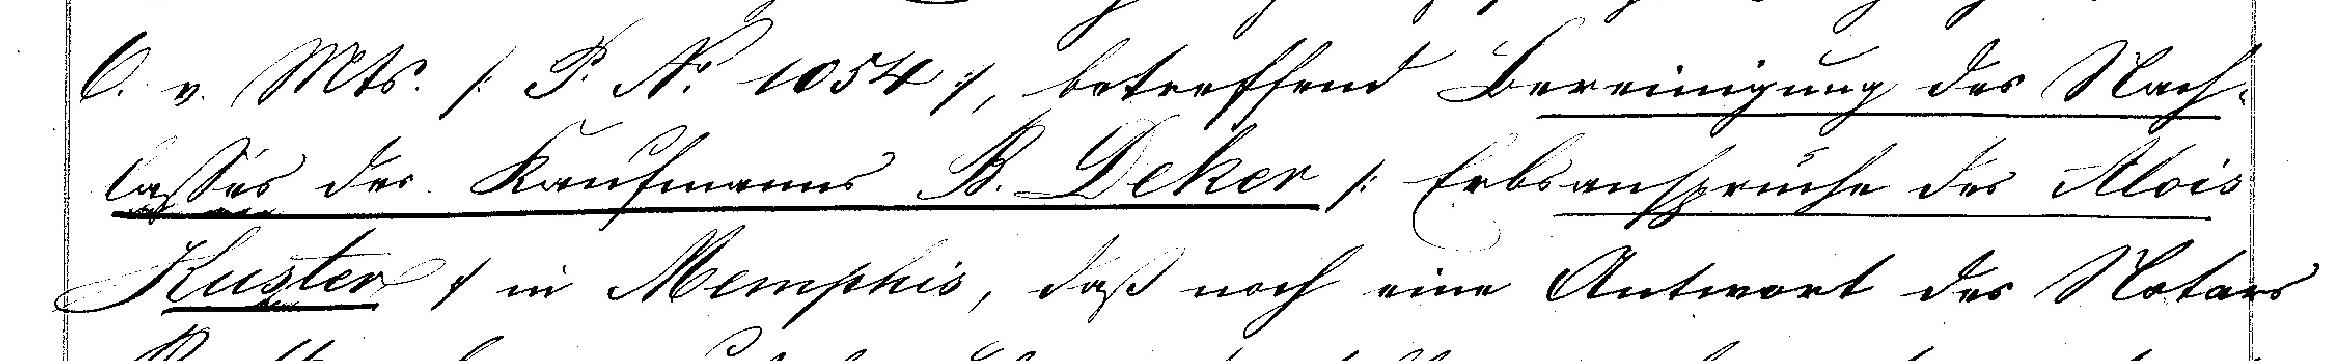 6. v. Mts. /: P. No. 1054 :/, betreffend Bereinigung des Nach-
lasses des Kaufmanns B. Deker /: Erbsansprüche des Alois
Kuster :/ in Memphis, daß noch eine Antwort des Notars